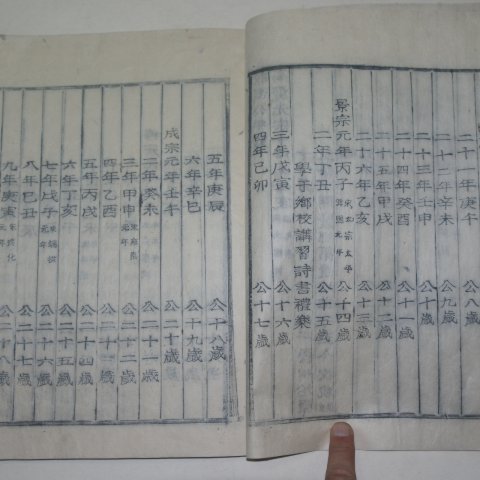 二十一年庚午 公八歲
二十二年辛未 公九歲
二十三年壬申 公十歲
二十四年癸酉 公十一歲
二十五年甲戌 公十二歲
二十六年乙亥 公十三歲
景宗元年丙子 公十四歲
二年丁丑 公十五歲
學于鄕校講習詩書禮樂
三年戊寅 公十六歲
四年己卯 公十七歲
五年庚辰 公十八歲
六年辛巳 公十九歲
成宗元年壬午 公二十歲
二年癸未 公二十一歲
三年甲申 公二十二歲
四年乙酉 公二十三歲
五年丙戌 公二十四歲
六年丁亥 公二十五歲
七年戊子 公二十六歲
八年己丑 公二十七歲
九年庚寅 公二十八歲